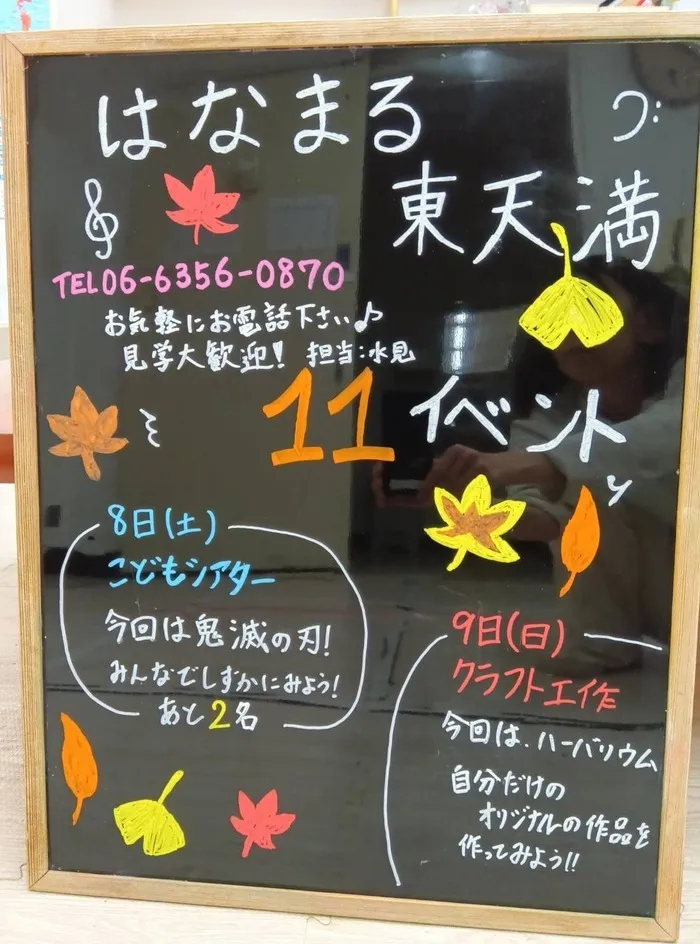 はなまる
東天満
TEL06-6356-0870
お気軽にお電話下さい♪
見学大歓迎! 担当:水見
11イベント
8日(土)
こどもシアター
今回は鬼滅の刃!
みんなでしずかにみよう!
あと2名
9日(日)
クラフト工作
今回は、ハーバリウム
自分だけの
オリジナルの作品を
作ってみよう!!